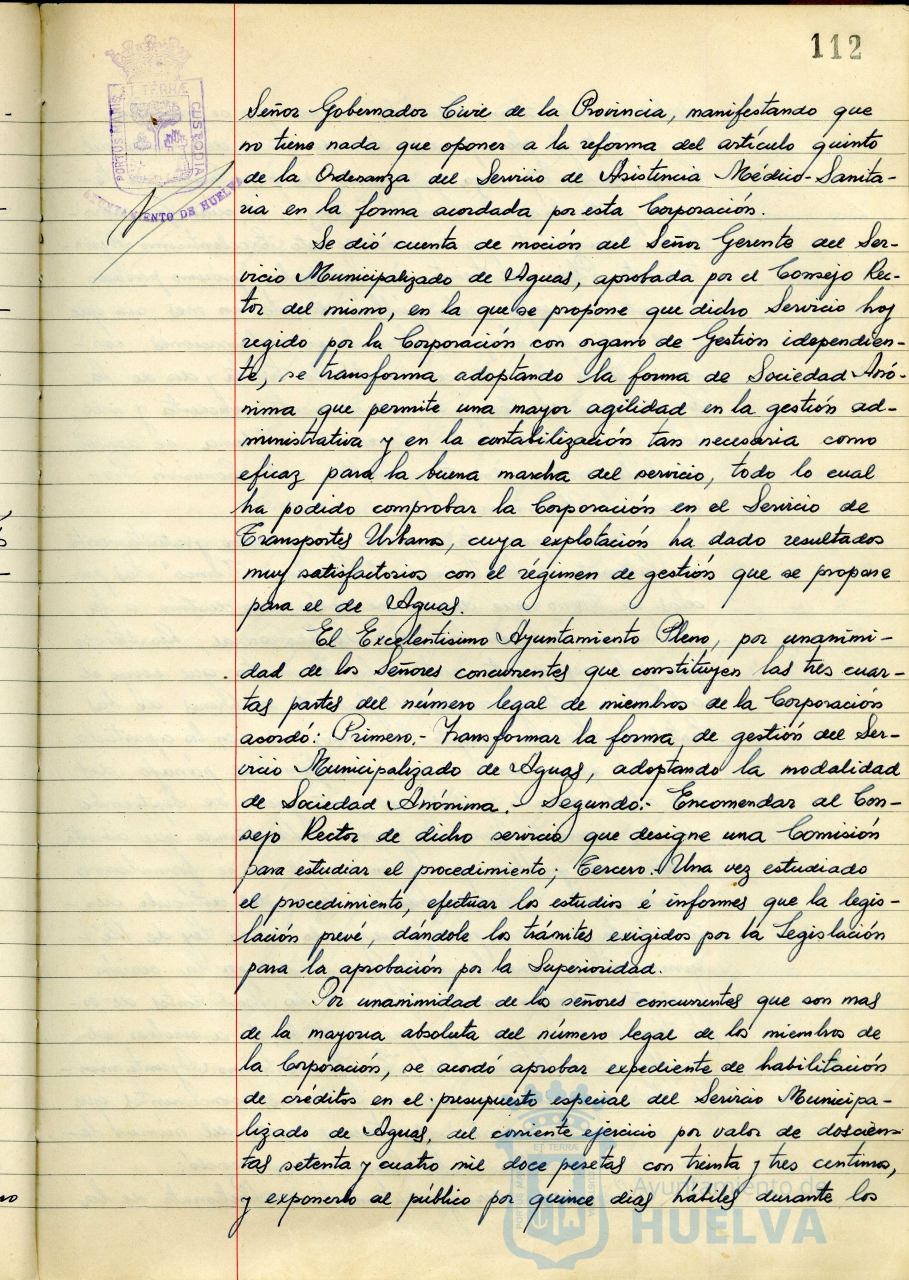 112
PORTUS MARIS
ET TERRÆ
CUSTODIA
AYUNTAMIENTO DE HUELVA
Señor Gobernador Civil de la Provincia, manifestando que
no tiene nada que oponer a la reforma del artículo quinto
de la Ordenanza del Servicio de Asistencia Médico-Sanita-
ria en la forma acordada por esta Corporación.
Se dió cuenta de moción del Señor Gerente del Ser-
vicio Municipalizado de Aguas, aprobada por el Consejo Rec-
tor del mismo, en la que se propone que dicho Servicio hoy
regido por la Corporación con organo de Gestión idependien-
te, se transforma adoptando la forma de Sociedad Anó-
nima que permite una mayor agilidad en la gestión ad-
ministrativa y en la contabilización tan necesaria como
eficaz para la buena marcha del servicio, todo lo cual
ha podido comprobar la Corporación en el Servicio de
Transportes Urbanos, cuya explotación ha dado resultados
muy satisfactorios con el régimen de gestión que se propone
para el de Aguas.
El Excelentísimo Ayuntamiento Pleno, por unanimi-
dad de los Señores concurrentes que constituyen las tres cuar-
tas partes del número legal de miembros de la Corporación
acordó: Primero.- Transformar la forma de gestión del Ser-
vicio Municipalizado de Aguas, adoptando la modalidad
de Sociedad Anónima.- Segundo.- Encomendar al Con-
sejo Rector de dicho servicio que designe una Comisión
para estudiar el procedimiento; Tercero.- Una vez estudiado
el procedimiento, efectuar los estudios é informes que la legis-
lación prevé, dándole los trámites exigidos por la Legislación
para la aprobación por la Superioridad.
Por unanimidad de los señores concurrentes que son mas
de la mayoria absoluta del número legal de los miembros de
la Corporación, se acordó aprobar expediente de habilitación
de créditos en el presupuesto especial del Servicio Municipa-
lizado de Aguas, del corriente ejercicio por valor de doscien-
tas setenta y cuatro mil doce pesetas con treinta y tres centimos,
y exponerlo al público por quince dias hábiles durante los
Ayuntamiento de
HUELVA